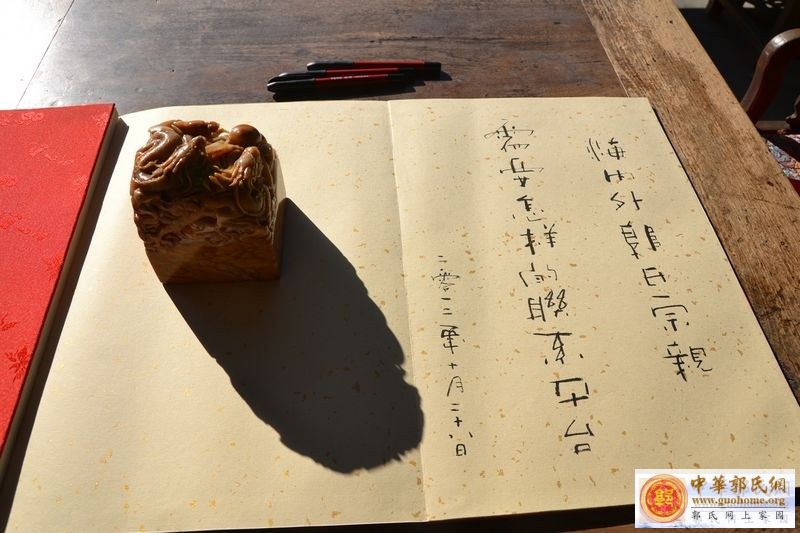 海内外郭氏宗親
需要怎樣的聯台
二零一二年十月二十八日
中華郭氏網
www.guohome.org
郭氏网上家园